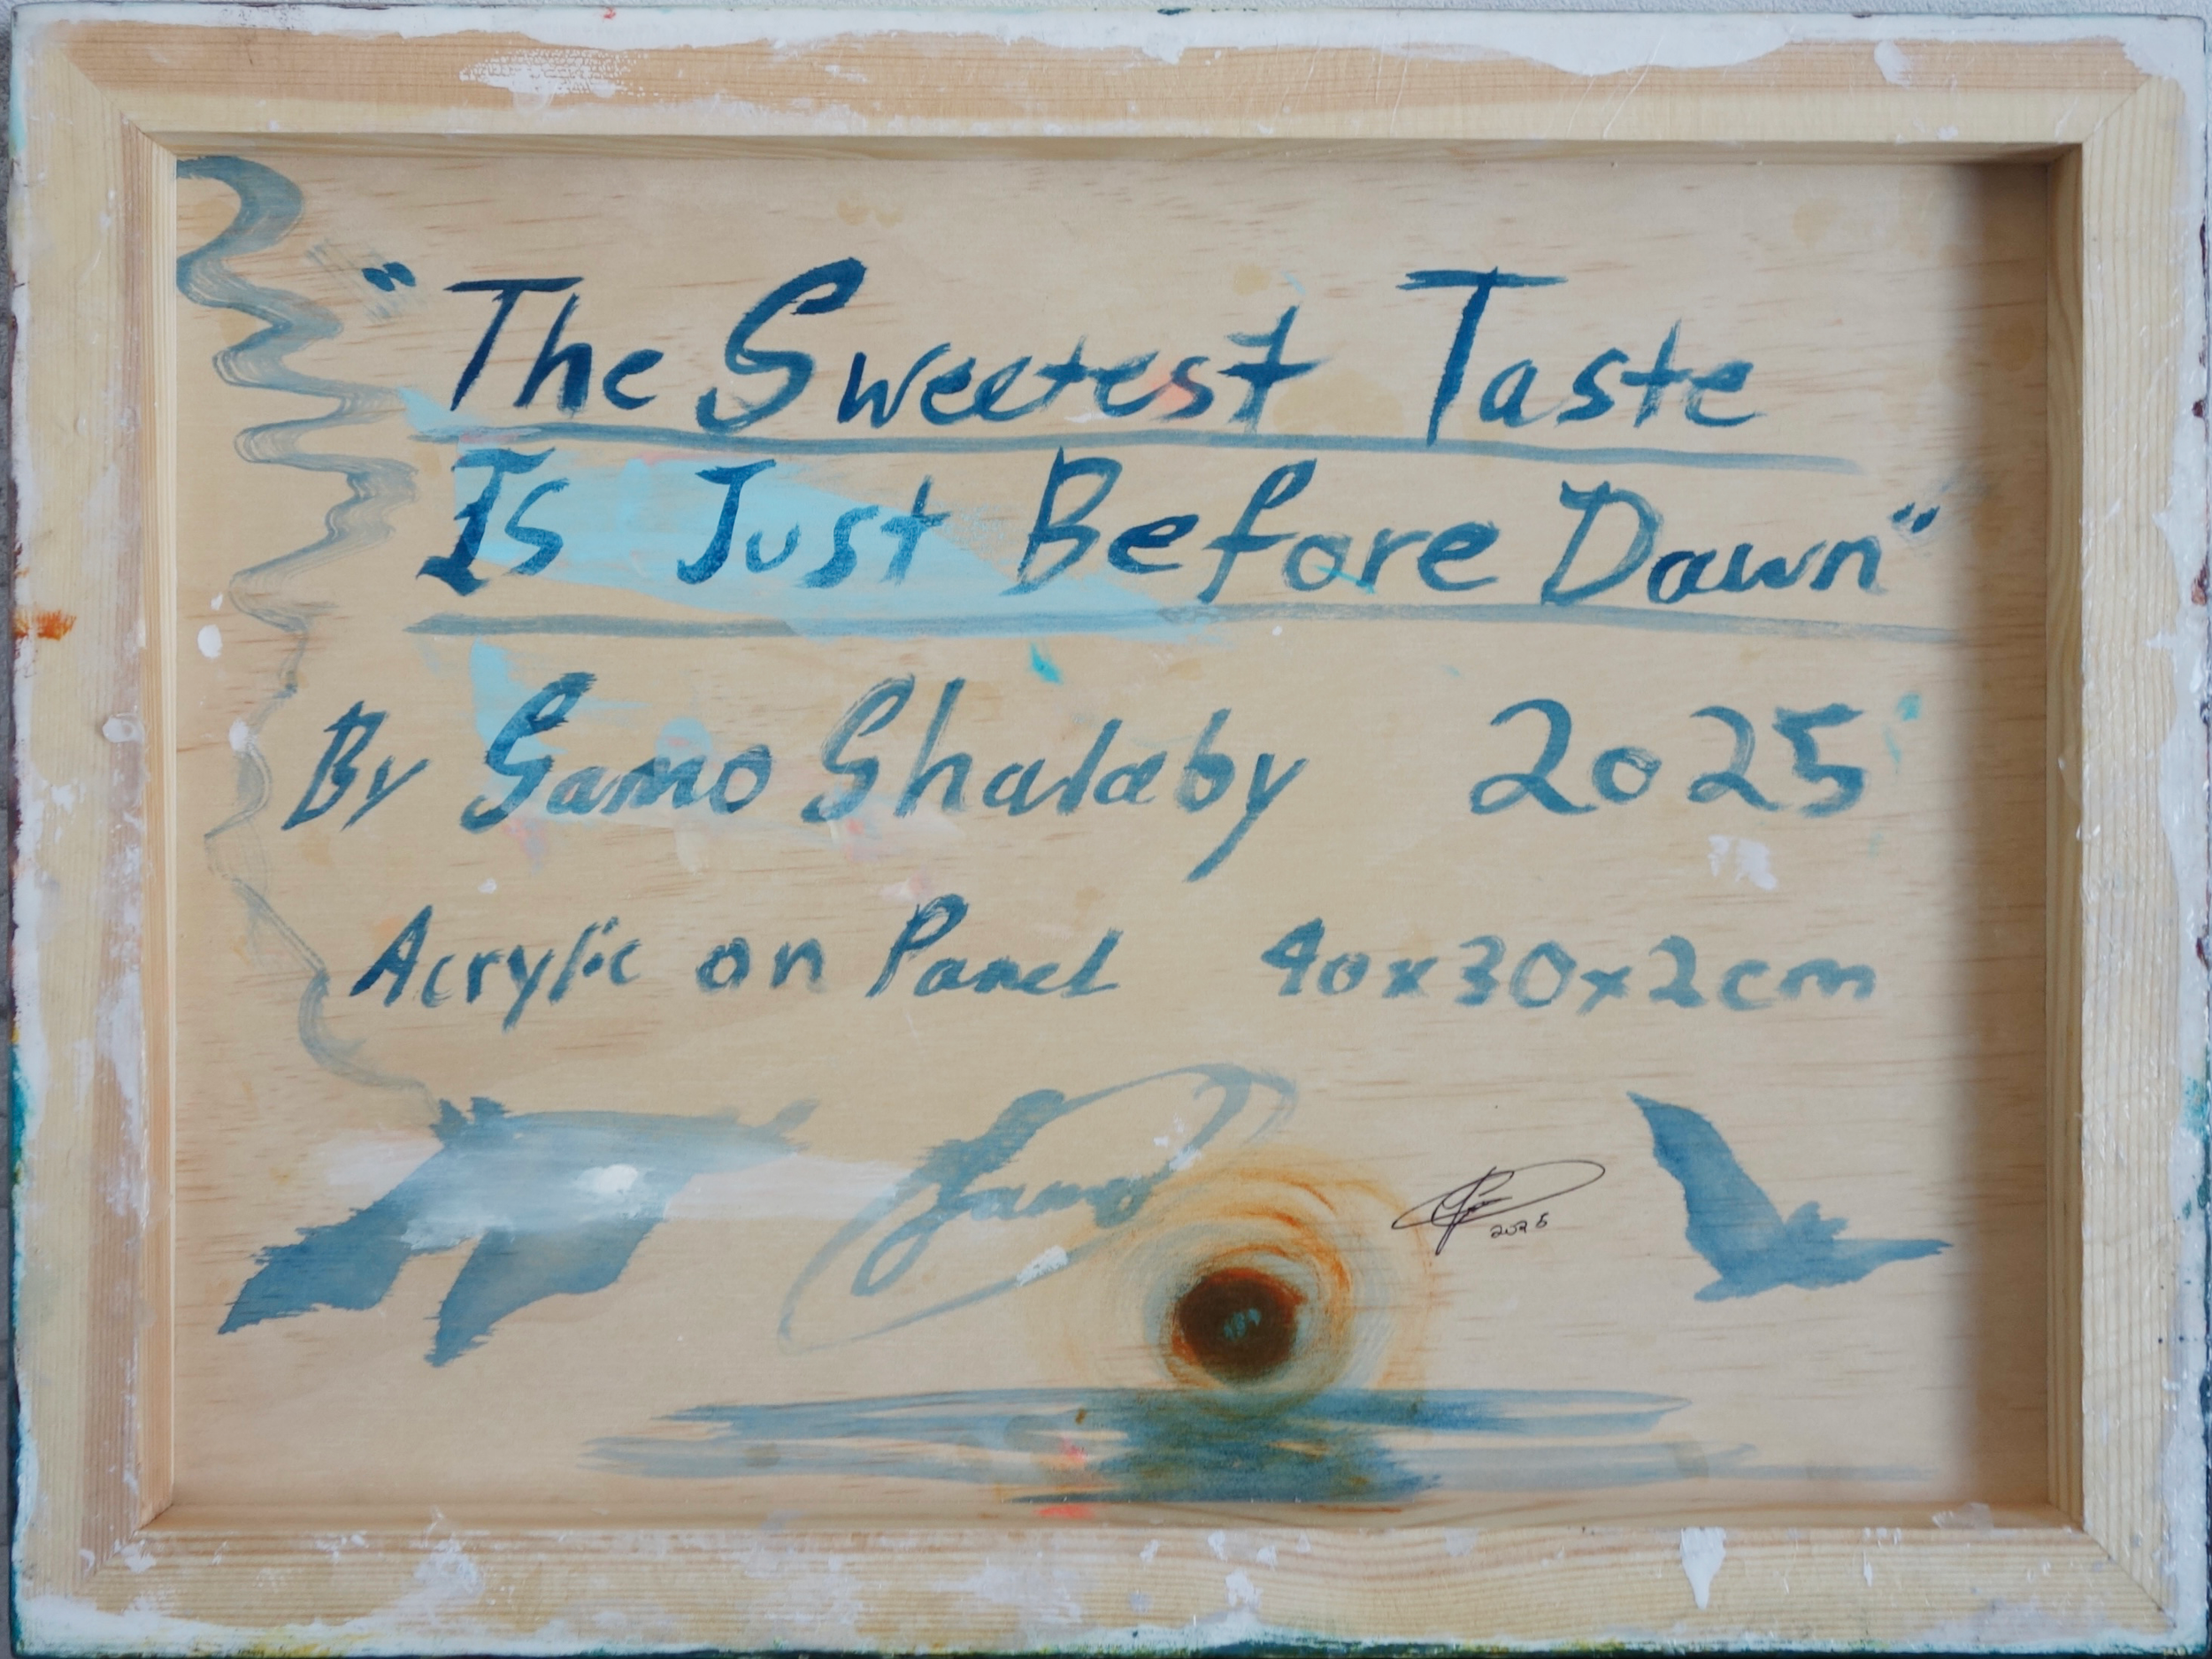 "The Sweetest Taste
Is Just Before Dawn"
By Samo Shalaby 2025
Acrylic on Panel 40x30x2cm
Samo
2025